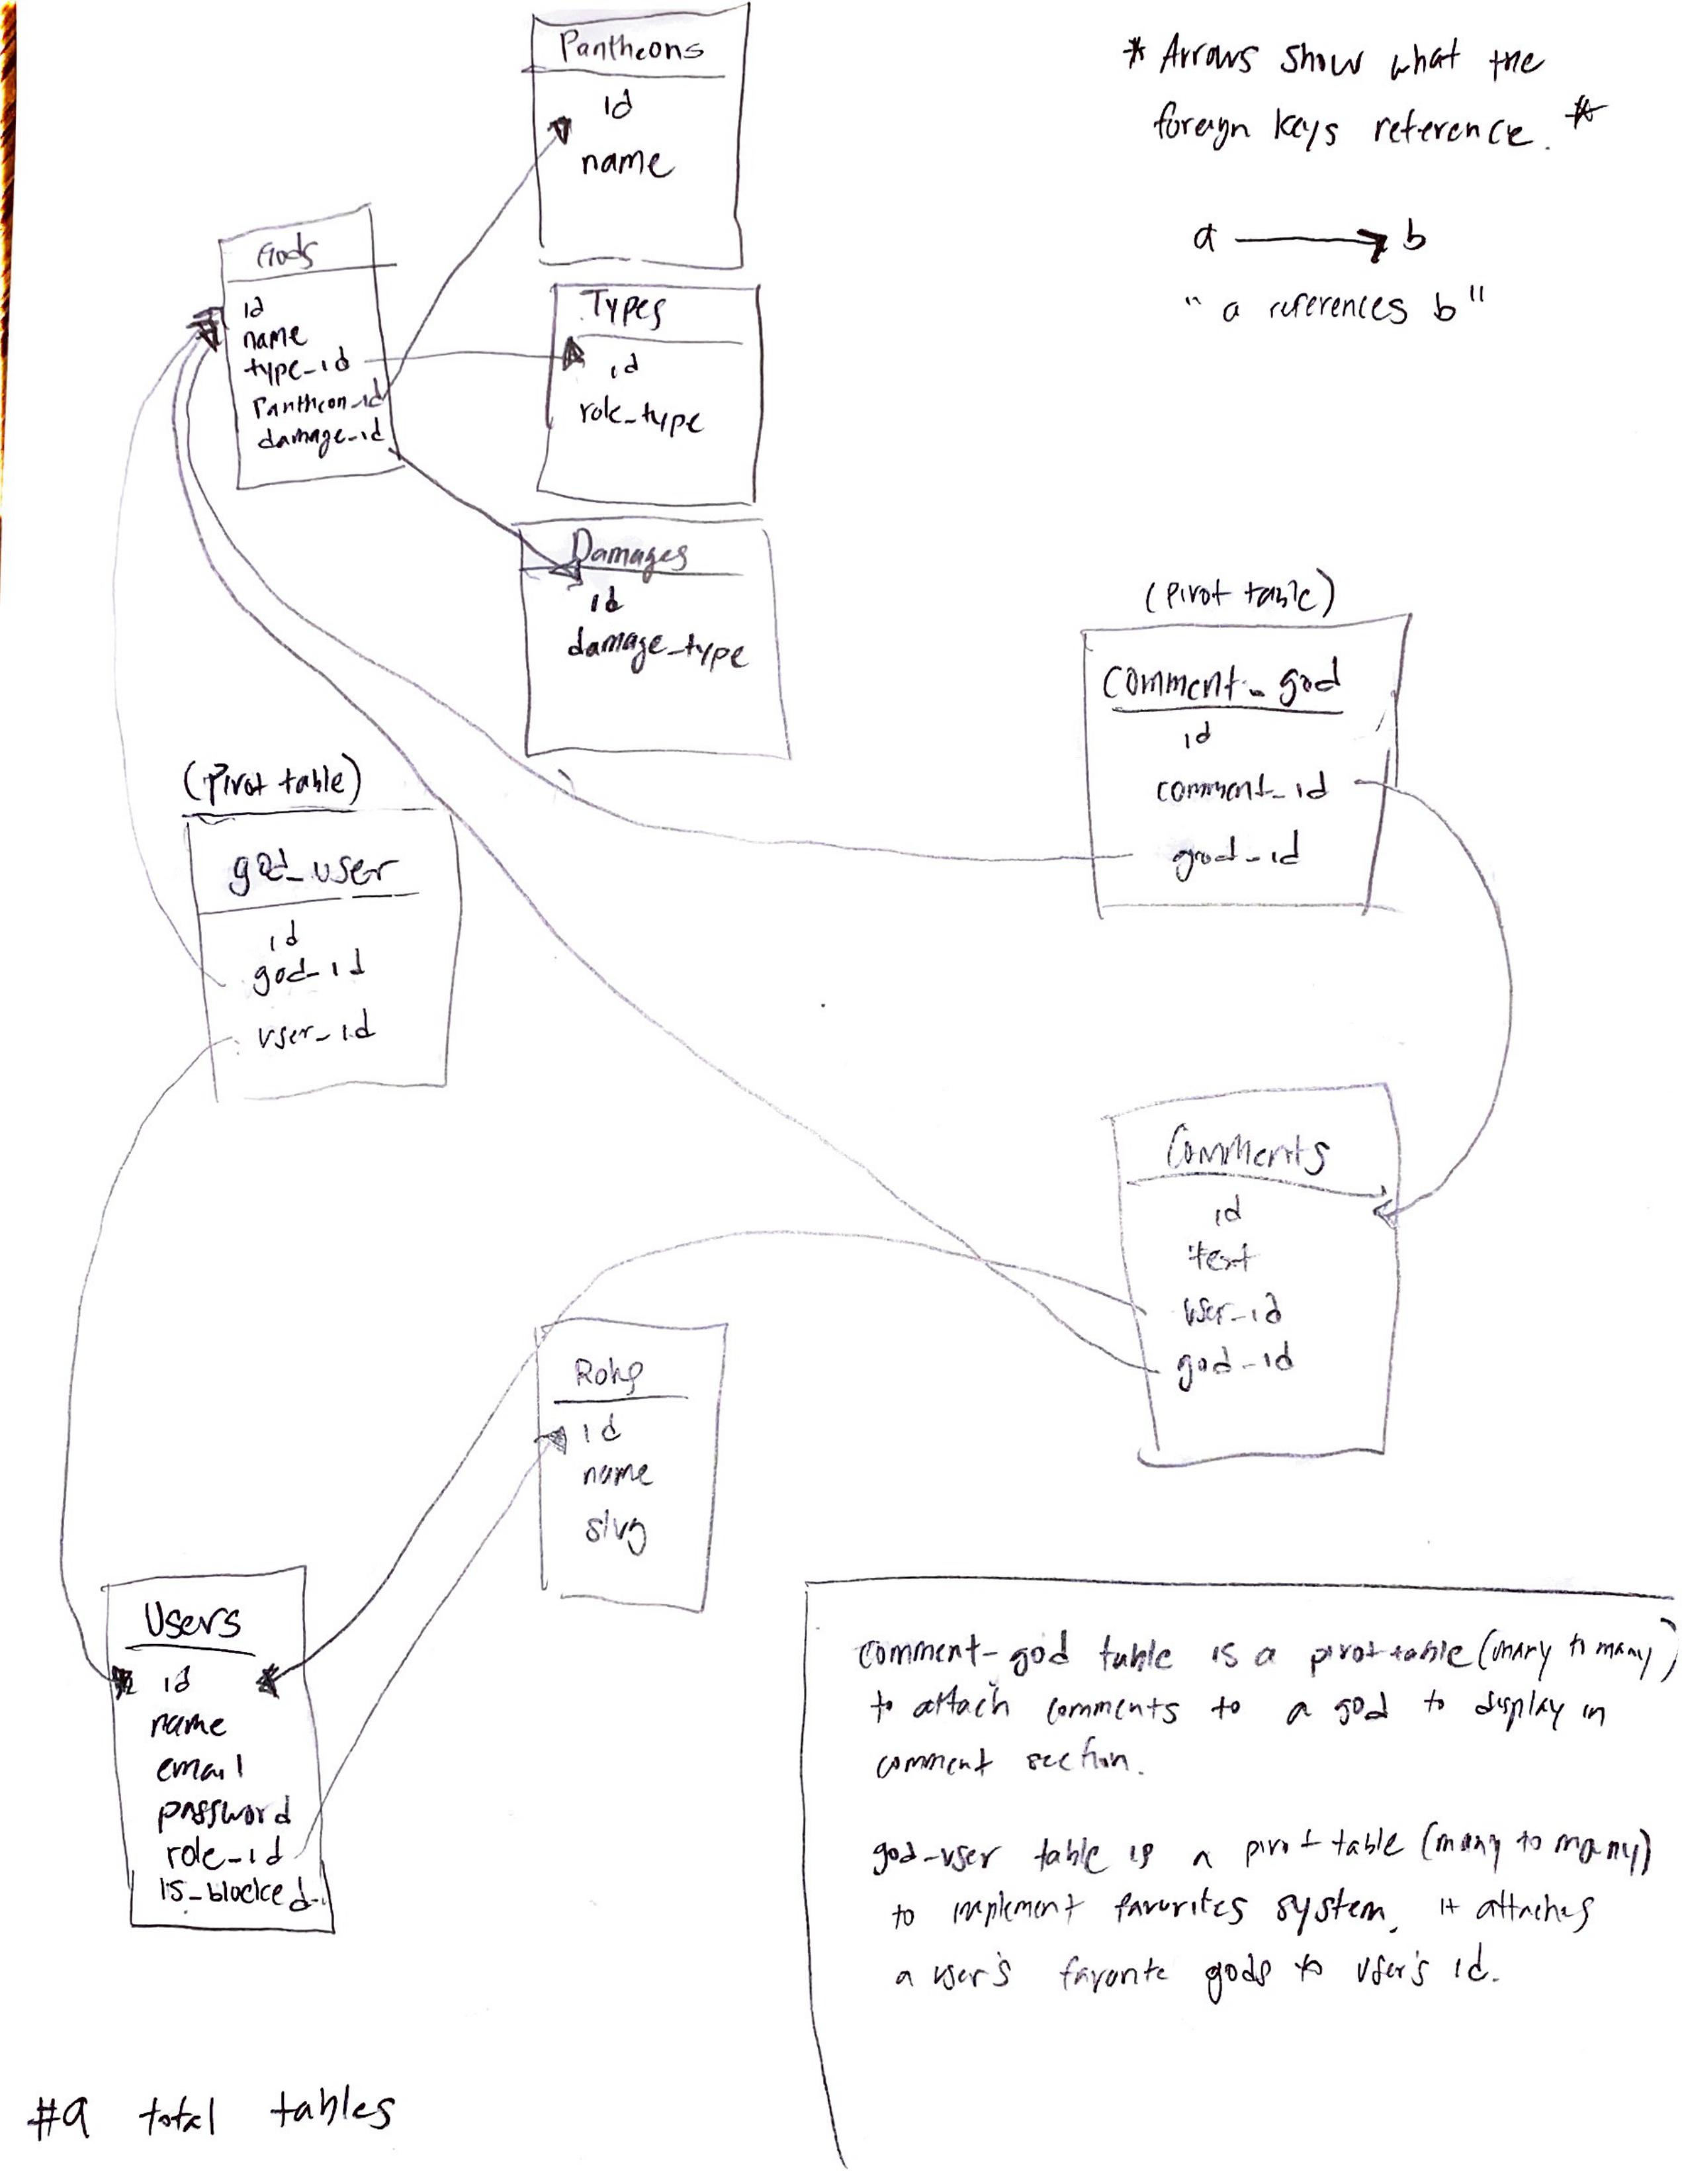 Pantheons
id
name
* Arrows show what the
foreign keys reference. *
a → b
" a references b "
Gods
id
name
type_id
Pantheon_id
damage_id
Types
id
role_type
Damages
id
damage_type
(Pivot table)
comment_god
id
comment_id
god_id
(Pivot table)
god_user
id
god_id
user_id
Comments
id
text
user_id
god_id
Roles
id
name
slug
Users
id
name
email
password
role_id
is_blocked
comment_god table is a pivot table (many to many)
to attach comments to a god to display in
comment section.
god_user table is a pivot table (many to many)
to implement favorites system. it attaches
a user's favorite gods to user's id.
#9 total tables